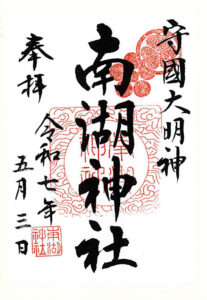 守國大明神
南湖神社
奉拝
令和七年
五月三日
南湖
神社